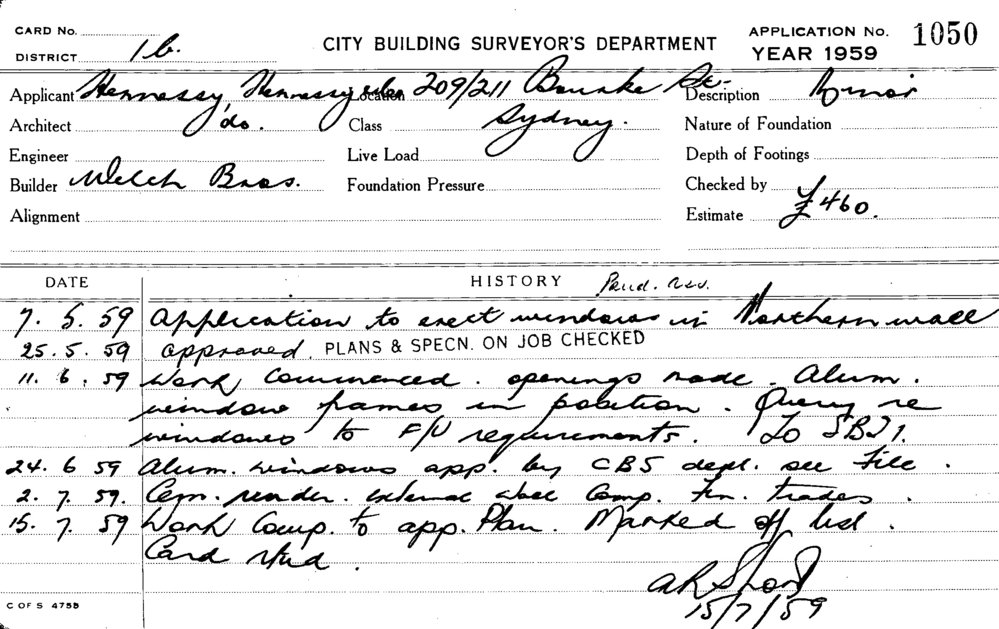 CARD No.
DISTRICT 1b.
CITY BUILDING SURVEYOR'S DEPARTMENT
APPLICATION No. 1050
YEAR 1959
Applicant Hennessy, Hennessy Location 209/211 Bourke St. Description Minor
Architect do. Class Sydney. Nature of Foundation
Engineer Live Load Depth of Footings
Builder Welch Bros. Foundation Pressure Checked by
Alignment Estimate £460.
DATE HISTORY
7. 5. 59 Application to erect windows in Northern wall
25. 5. 59 approved. PLANS & SPECN. ON JOB CHECKED
11. 6. 59 Work Commenced. openings made. Alum.
window frames in position. Query re
windows to F/U requirements. To
24. 6 59 Alum. windows app. by CBS dept. see File.
2. 7. 59. Cem. render. external wall Comp. Fin. trades.
15. 7. 59 Work Comp. to app. Plan. Marked off list.
Card
15/7/59
C OF S 475B